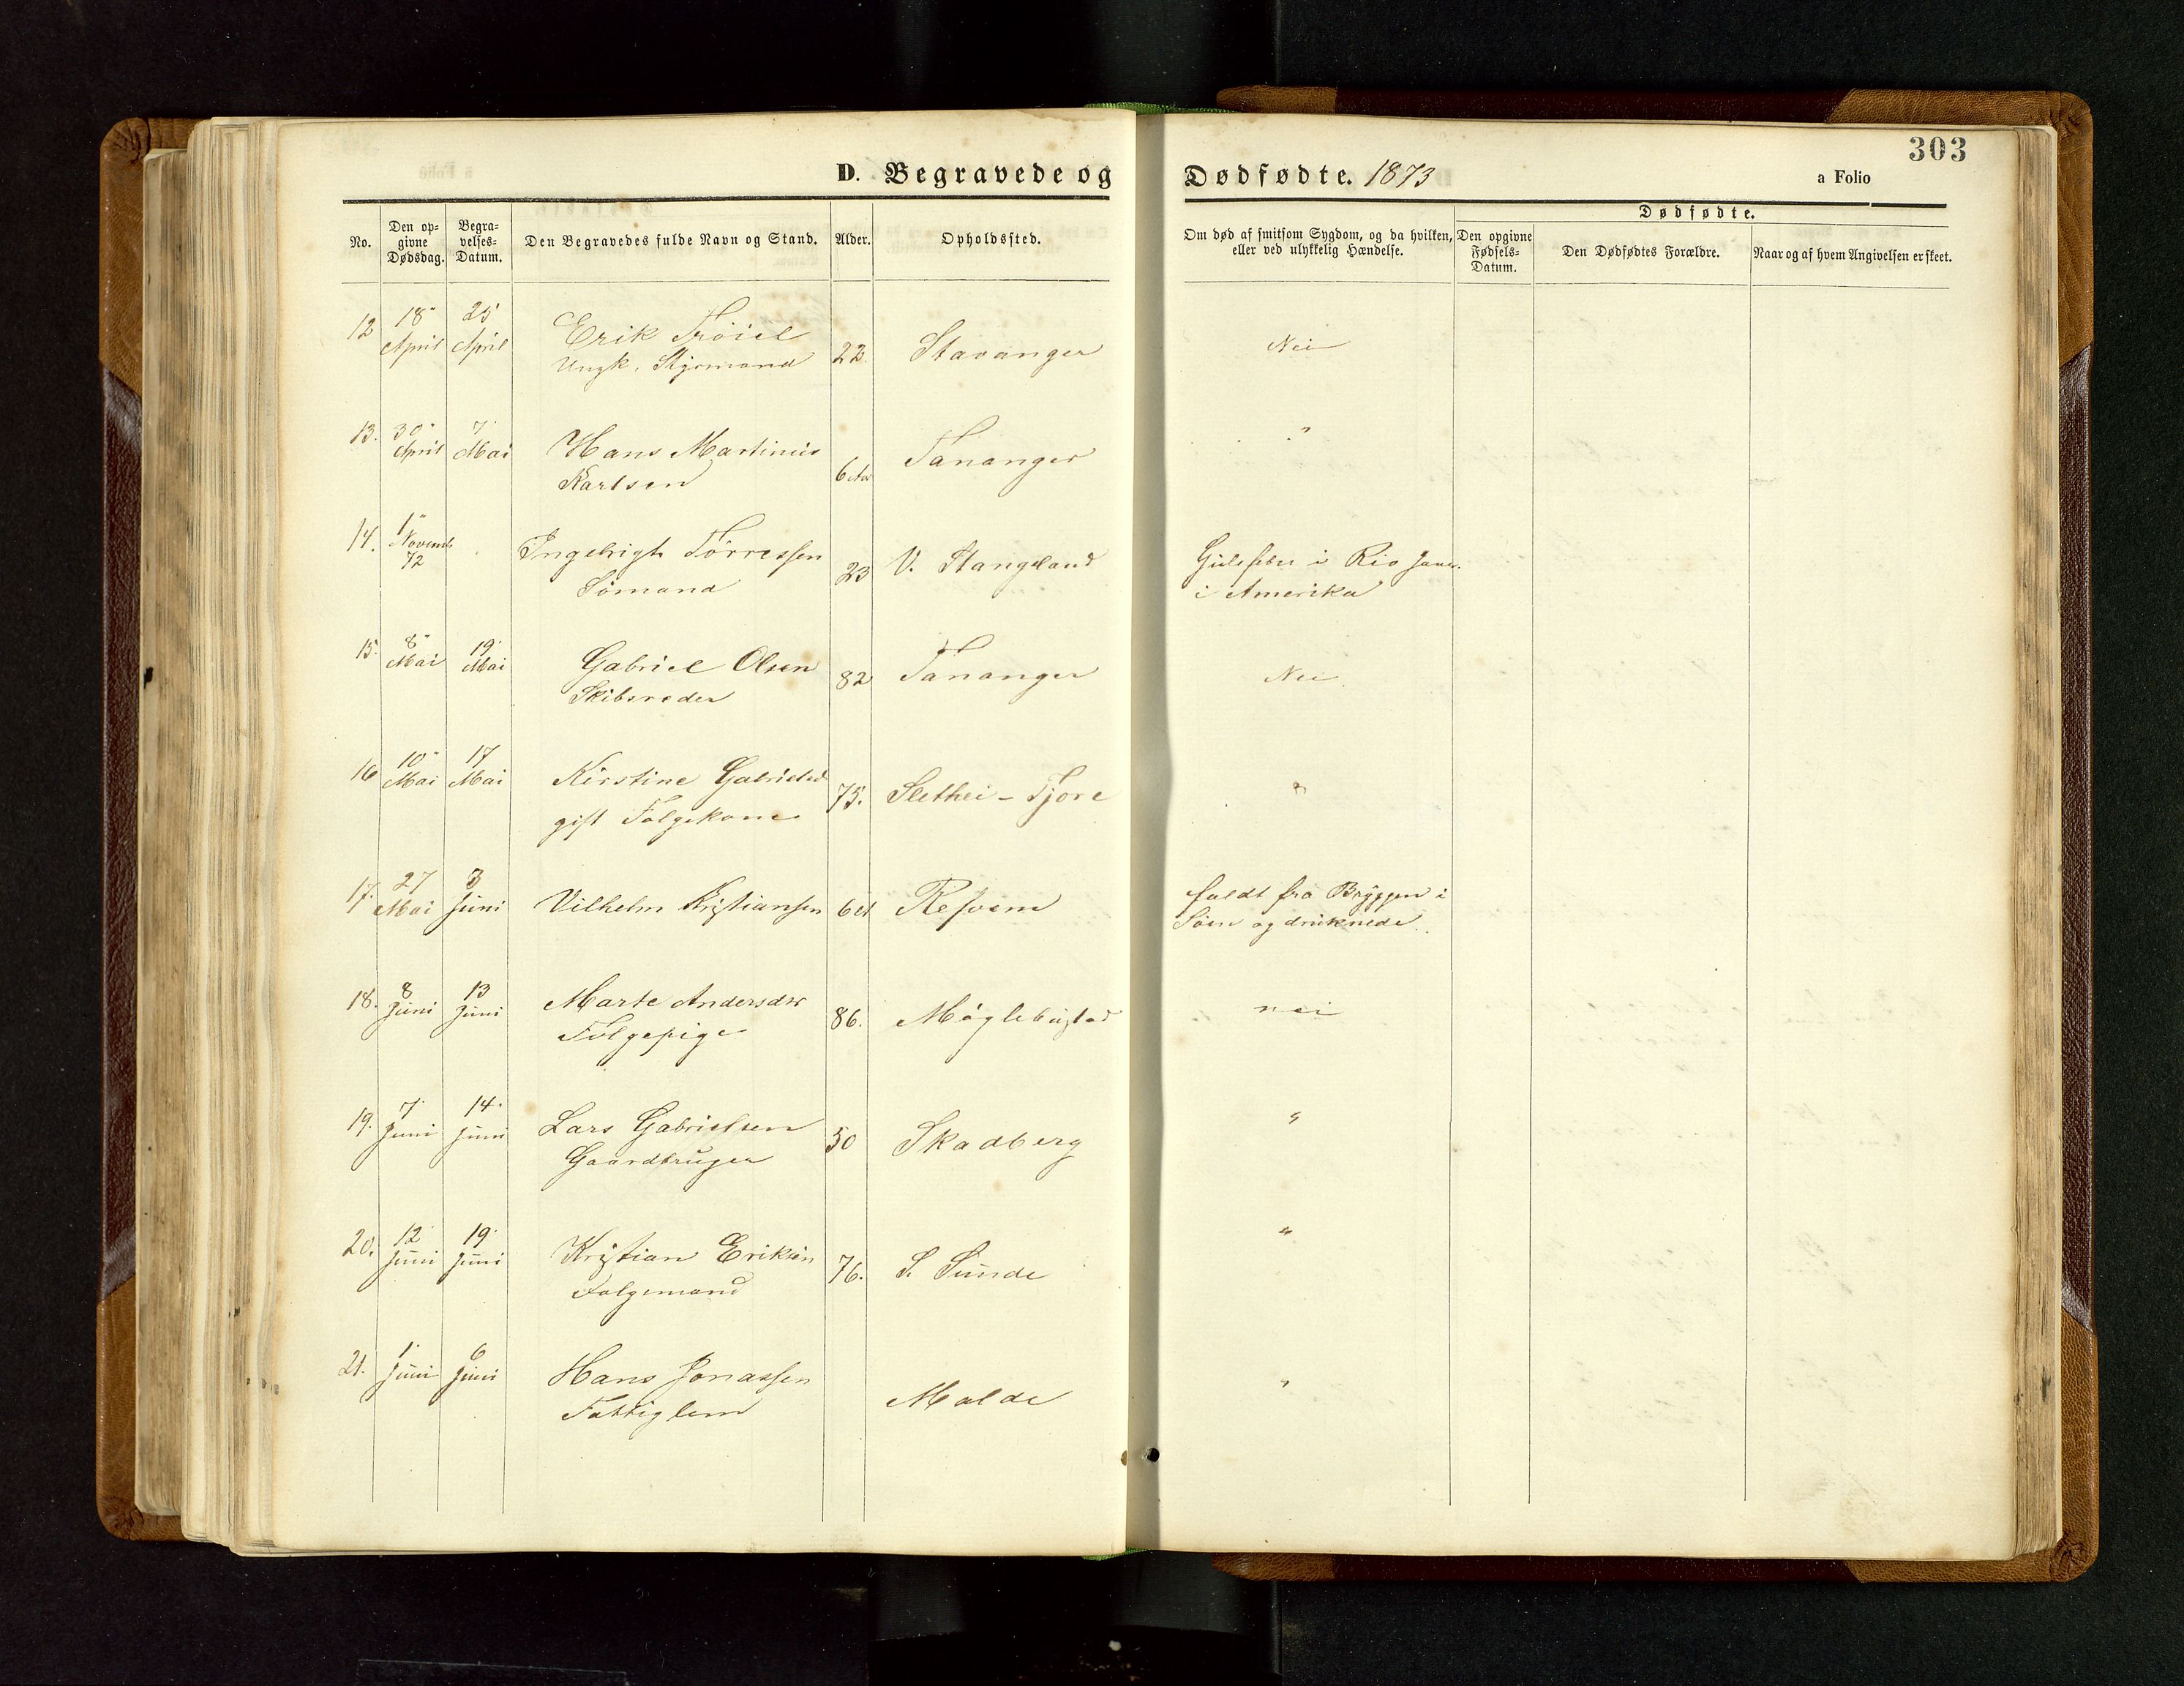 303
D. Begravede og Dødfødte. 1873
a Folio
No.
Den op-
givne
Dødsdag.
Begra-
velses-
Datum.
Den Begravedes fulde Navn og Stand.
Alder.
Opholdssted.
Om død af smitsom Sygdom, og da hvilken,
eller ved ulykkelig Hændelse.
Dødfødte.
Den opgivne
Fødsels-
Datum.
Den Dødfødtes Forældre.
Naar og af hvem Angivelsen er skeet.
12 18" 25 Erik Tröiel
April April Ungk. Styrmand 22. Stavanger Nei
13. 30" 7. Hans Martinus Tananger "
April Mai Karlsen
14. 1" Novemb 72 Ingebrigt Törressen 23 V. Stangeland Gulfeber i Rio Jane.
Sömand i Amerika
15. 8" 19. Gabriel Olsen 82 Tananger Nei
Mai Mai Skibsreder
16 10" 17 Kirstine Gabrielsd 75. Slethei - Tjore "
Mai Mai gift Folgekone
17. 27 3 Vilhelm Kristiansen faldt fra Bryggen i
Mai Juni Söen og druknede.
18. 8 13 Marte Andersdtr 86. nei
Juni Juni Folgepige
19. 7. 14. Lars Gabrielsen 50 Skadberg "
Juni Juni Gaardbruger
20. 12 19. Kristian Eriksen 76. S. Sunde "
Juni Juni Folgemand
21. 1. 6 Hans Jonassen Malde "
Juni Juni Fattiglem